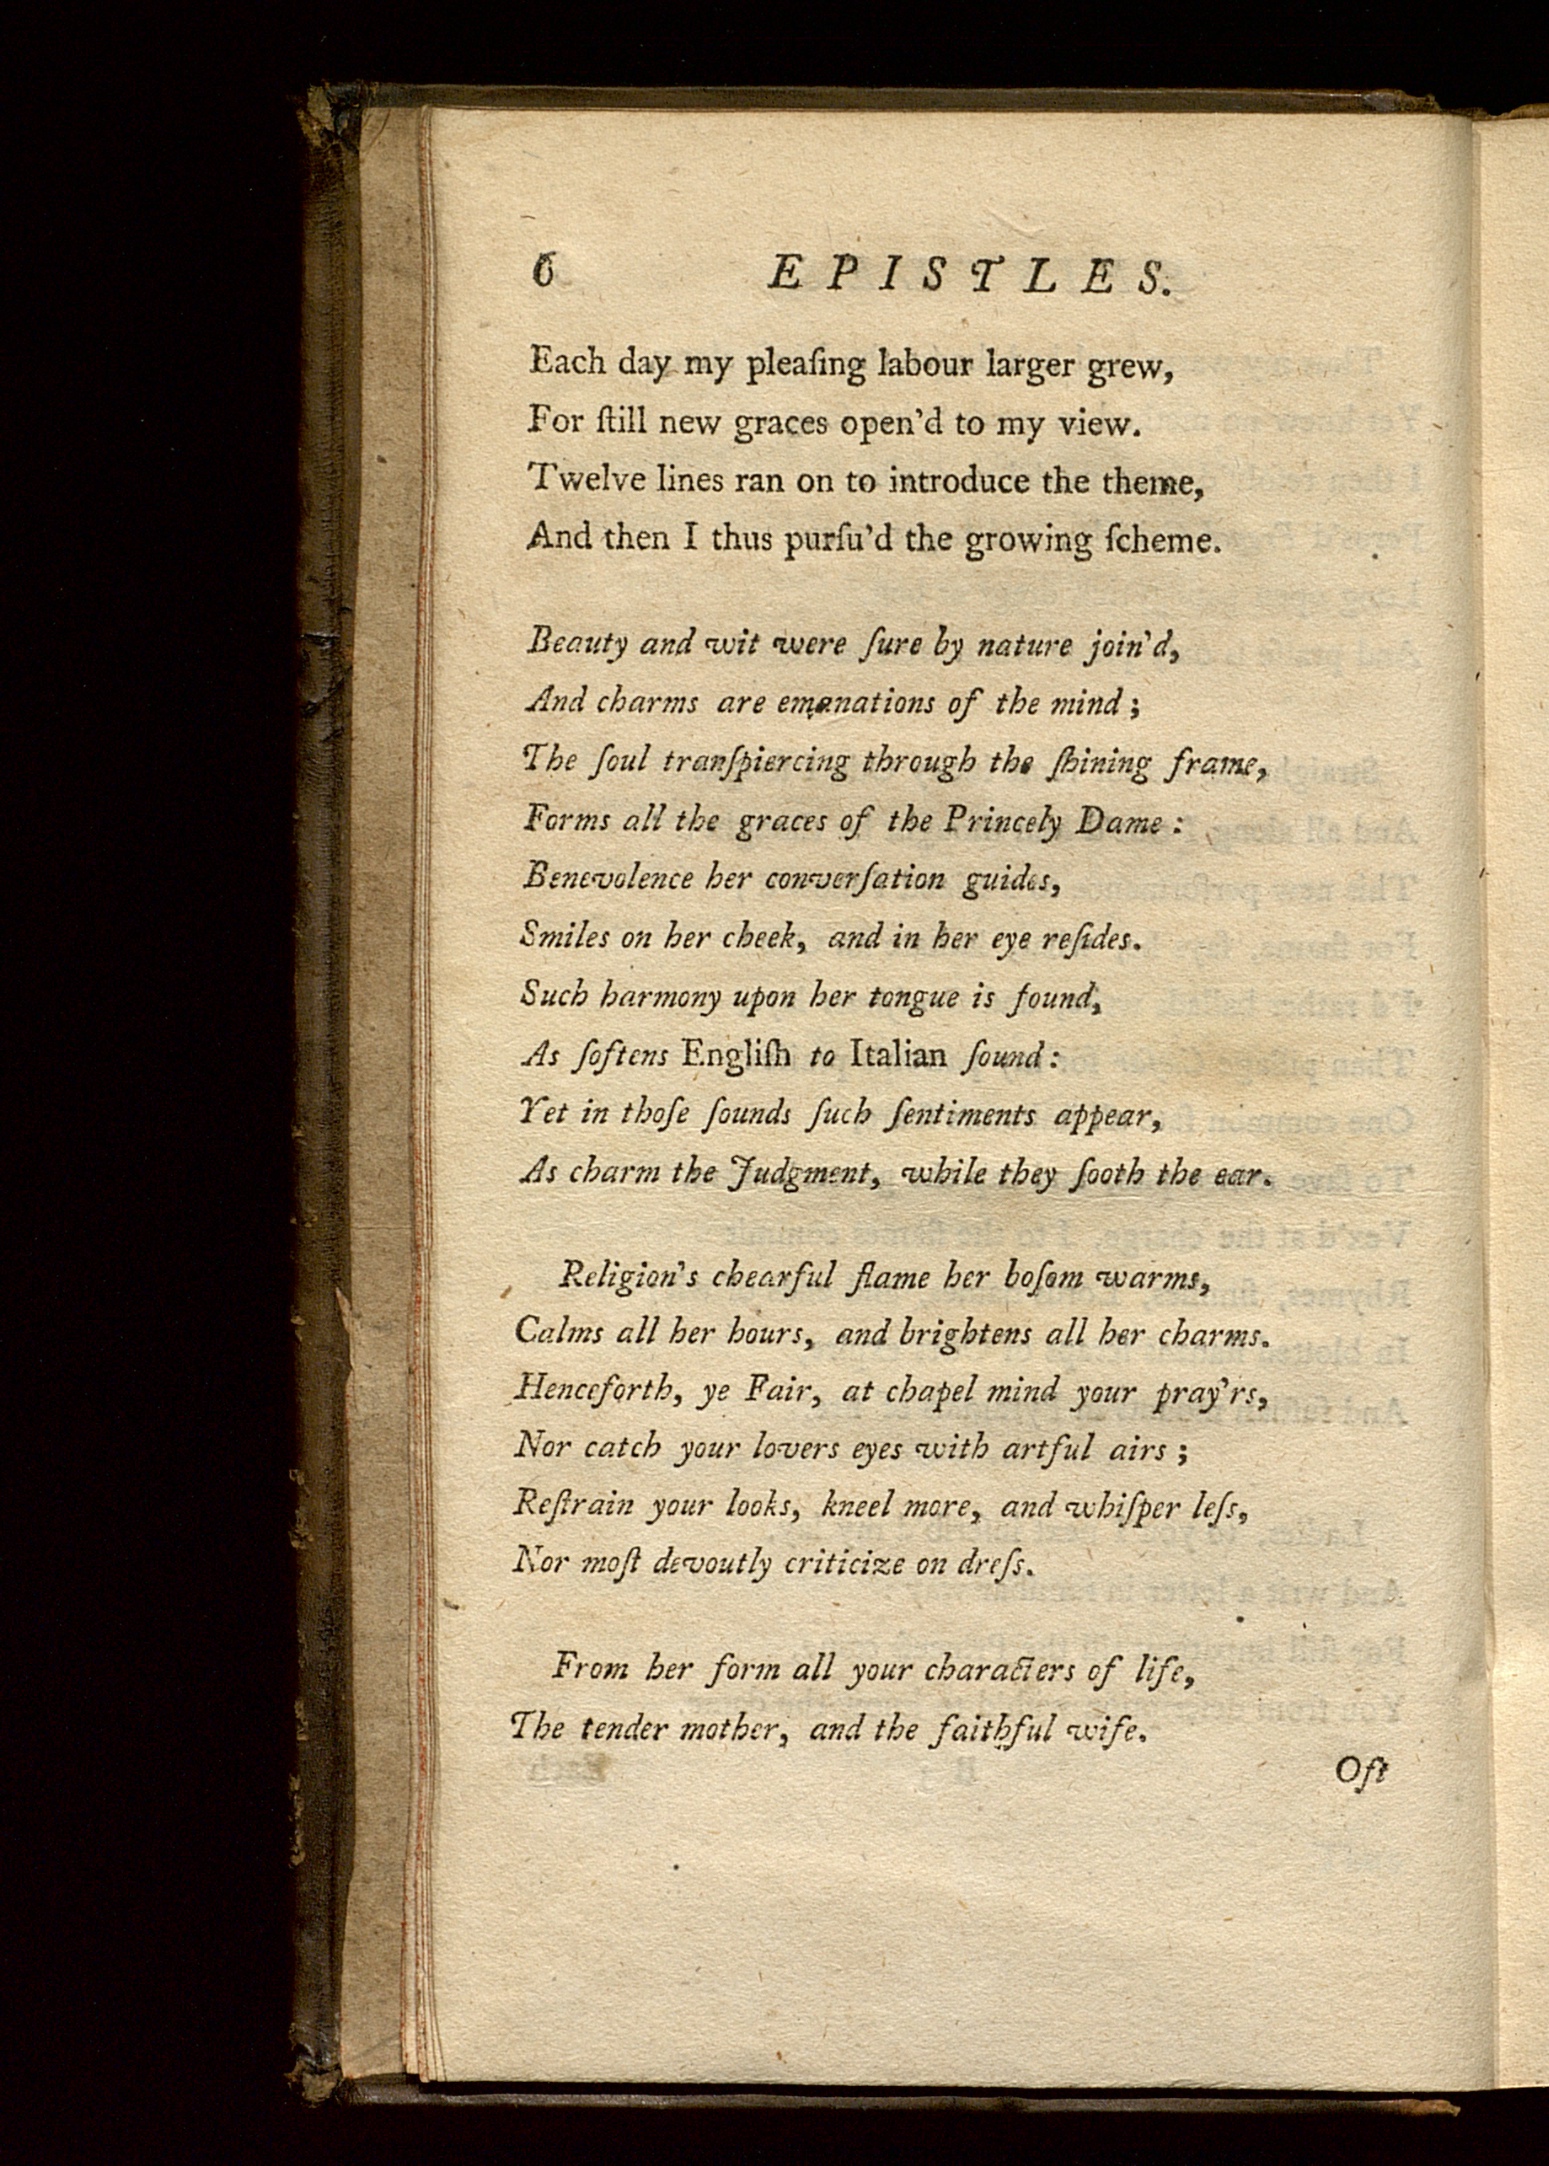 6 EPISTLES.
Each day my pleaſing labour larger grew,
For ſtill new graces open'd to my view.
Twelve lines ran on to introduce the theme,
And then I thus purſu'd the growing ſcheme.
Beauty and wit were ſure by nature join'd,
And charms are emanations of the mind;
The ſoul tranſpiercing through the ſhining frame,
Forms all the graces of the Princely Dame:
Benevolence her converſation guides,
Smiles on her cheek, and in her eye reſides.
Such harmony upon her tongue is found,
As ſoftens Engliſh to Italian ſound:
Yet in thoſe ſounds ſuch ſentiments appear,
As charm the Judgment, while they ſooth the ear.
Religion's chearful flame her boſom warms,
Calms all her hours, and brightens all her charms.
Henceforth, ye Fair, at chapel mind your pray'rs,
Nor catch your lovers eyes with artful airs;
Reſtrain your looks, kneel more, and whiſper leſs,
Nor moſt devoutly criticize on dreſs.
From her form all your characters of life,
The tender mother, and the faithful wife.
Oft